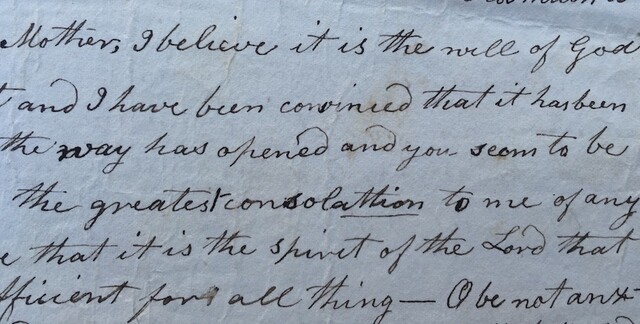 Mother, I believe it is the will of God
and I have been convinced that it has been
the way has opened and you seem to be
the greatest consolathion to me of any
e that it is the spirit of the Lord that
fficient for all thing — O be not anx